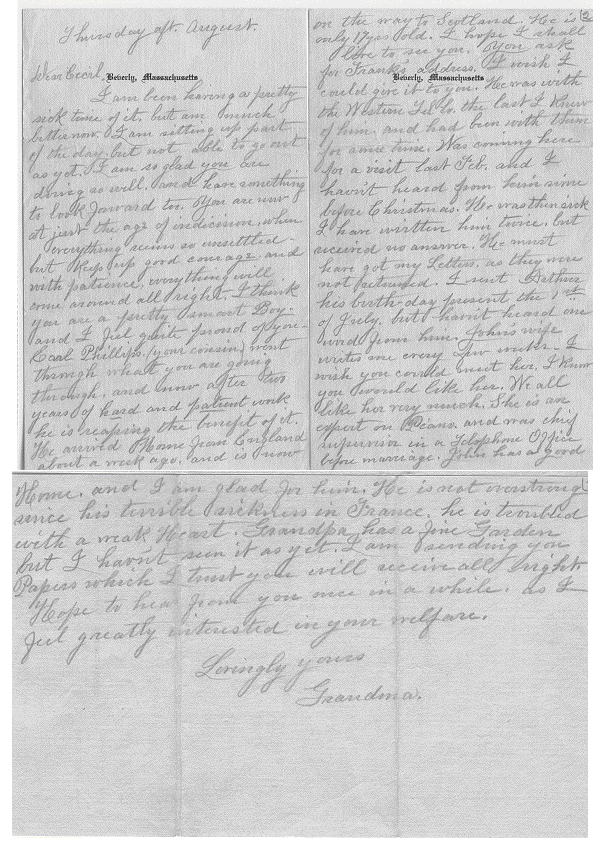 Thursday aft. August.
Dear Cecil,
Beverly, Massachusetts
I am been having a pretty
sick time of it, but am much
better now. I am sitting up part
of the day, but not able to go out
as yet. I am so glad you are
doing so well, and have something
to look forward to. You are now
at just the age of indicision, when
everything seems so unsettled -
but keep up good courage and
with patience, everything will
come around all right. I think
you are a pretty smart Boy -
and I feel quite proud of you -
Carl Phillips, (your cousin) went
through what you are going
through, and now after two
years of hard and patient work
he is reaping the benefit of it.
He arrived Home from England
about a week ago, and is now
on the way to Scotland. He is
only 17 yrs old. I hope I shall
live to see you. You ask
for Frank's address. I wish I
Beverly, Massachusetts
could give it to you. He was with
the Western Tel Co. the last I knew
of him, and had been with them
for some time. Was coming here
for a visit last Feb. and I
havn't heard from him since
before Christmas. He was then sick
I have written him twice, but
received no answer. He must
have got my Letters, as they were
not returned. I sent Arthur
his birth-day present the 1st
of July, but havn't heard one
word from him. John's wife
writes me every few weeks - I
wish you could meet her. I know
you would like her. We all
like her very much. She is an
expert on Piano, and was chief
supervisor in a Telephone Office
before marriage. John has a good
Home, and I am glad for him. He is not overstrong
since his terrible sickness in France. he is troubled
with a weak Heart. Grandpa has a fine Garden
but I havn't seen it as yet. I am sending you
Papers which I trust you will receive all right.
Hope to hear from you once in a while, as I
feel greatly interested in your welfare.
Lovingly yours
Grandma.